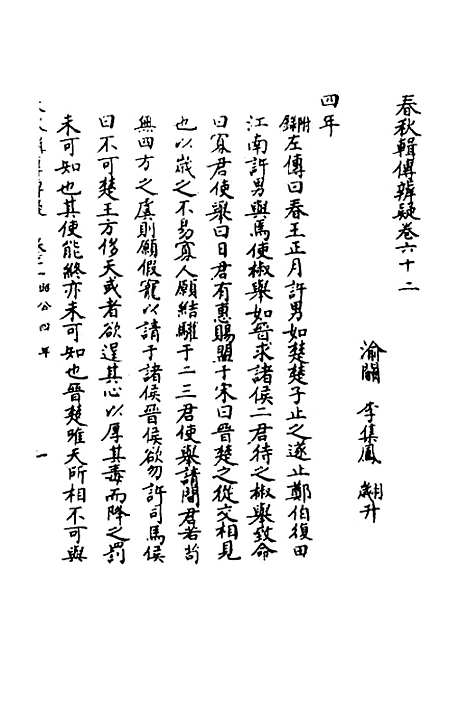 春秋輯傳辨疑卷六十二
渝關 李集鳳 翽升
四年
附錄左傳曰春王正月許男如楚楚子止之遂止鄭伯復田
江南許男與焉使椒舉如晉求諸侯二君待之椒舉致命
曰寡君使舉曰日君有惠賜盟于宋曰晉楚之從交相見
也以歲之不易寡人願結驩于二三君使舉請間君若苟
無四方之虞則願假寵以請于諸侯晉侯欲勿許司馬侯
曰不可楚王方侈天或者欲逞其心以厚其毒而降之罰
未可知也其使能終亦未可知也晉楚唯天所相不可與
昭公四年 一